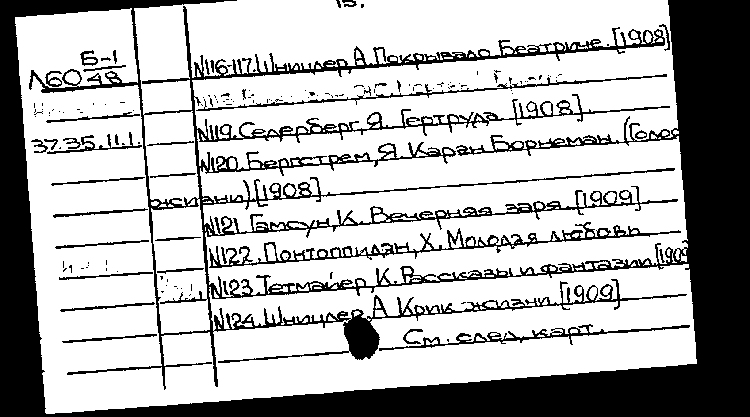 15.
Б-1
Л60 48
N116-117. Шницлер, А. Покрывало Беатриче. [1908]
N119. Седерберг, Я. Гертруда [1908].
37.35.11.1.
N120. Бергстрем, Я. Карен Борнеман. (Голоса
жизни) [1908].
N121 Гамсун, К. Вечерняя заря. [1909]
N122. Понтоппидан, Х. Молодая любовь
N123. Тетмайер, К. Рассказы и фантазии. [1909
N124. Шницлер, А Крик жизни. [1909]
См. след. карт.